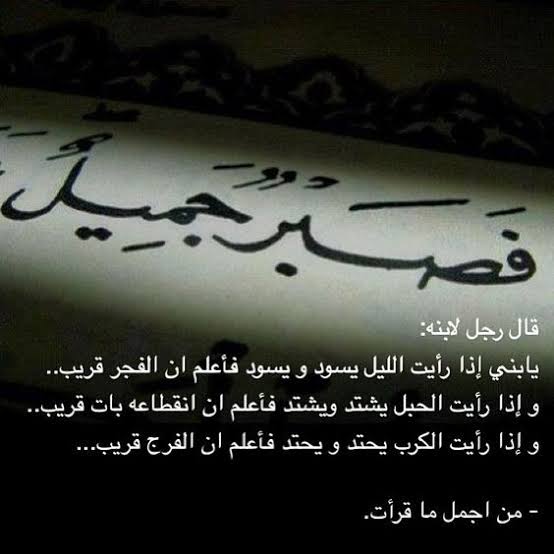 فَصَبْرٌ جَمِيلٌ
قال رجل لابنه:
يابني إذا رأيت الليل يسود و يسود فأعلم ان الفجر قريب..
و إذا رأيت الحبل يشتد ويشتد فأعلم ان انقطاعه بات قريب..
و إذا رأيت الكرب يحتد و يحتد فأعلم ان الفرج قريب...
- من اجمل ما قرأت.